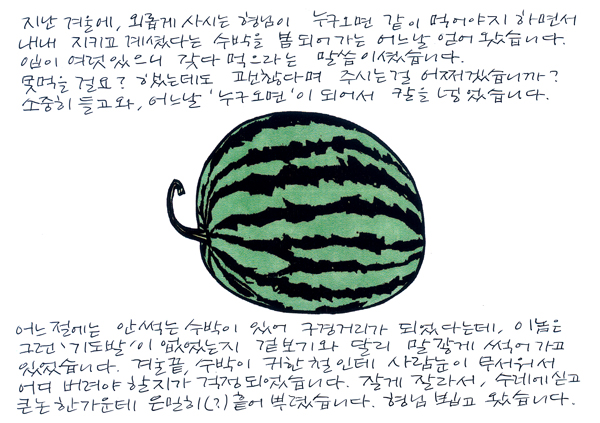 지난 겨울에, 외롭게 사시는 형님이 누구오면 같이 먹어야지 하면서
내내 지키고 계셨다는 수박을 봄 되어가는 어느날 얻어 왔습니다.
입이 여럿 있으니 갖다 먹으라는 말씀이셨습니다.
못먹을 걸요? 했는데도 괜찮다며 주시는걸 어쩌겠습니까?
소중히 들고와, 어느날 '누구오면'이 되어서 칼을 넣었습니다.
어느절에는 안썩는 수박이 있어 구경거리가 되었다는데, 이놈은
그런 '기도발'이 없었는지 겉보기와 달리 말짱게 썩어가고
있었습니다. 겨울끝, 수박이 귀한 철인데 사람눈이 무서워서
어디 버려야 할지가 걱정되었습니다. 잘게 잘라서, 수레에 싣고
큰논 한가운데 은밀히(?) 흩어 뿌렸습니다. 형님 뵙고 왔습니다.